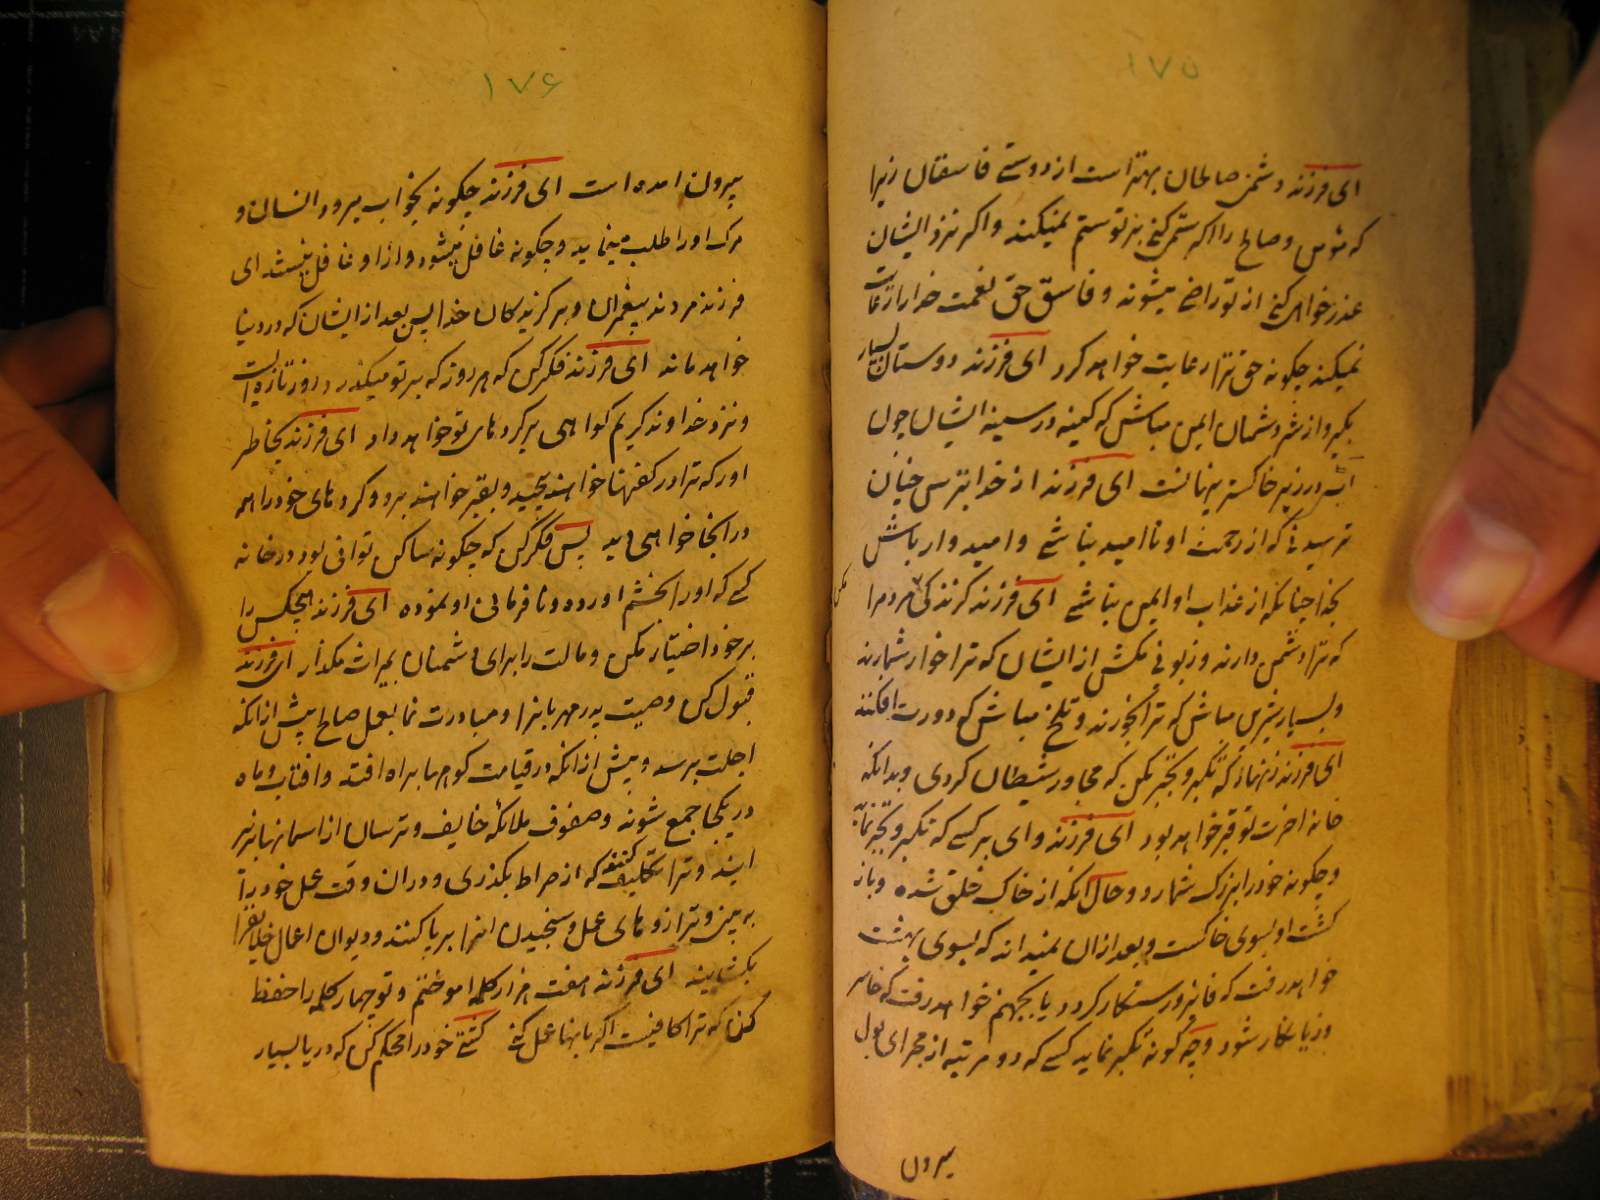 ۱۷۵
ای فرزند دشمن صالحان بهتر است از دوستے فاسقان زیرا
که مؤمن و صالح را اکر ستم کنے بر تو ستم نمیکند و اکر نزد ایشان
عذر خواهی کنے از تو راضے میشوند و فاسق حق نعمت خدا را رعایت
نمیکند چکونه حق ترا رعایت خواهد کرد ای فرزند دوستان بسیار
بکیر و از شر دشمنان ایمن مباش که کینه در سینه ایشان چون
آب در زیر خاکستر پنهانست ای فرزند از خدا بترس چنان
ترسیدنے که از رحمت او ناامید نباشے و امیدوار باش
بخدا چنانکه از عذاب او ایمن نباشے ای فرزند کزندکی مردم را
که ترا دشمن دارند و زبونے مکش از ایشان که ترا خوار شمارند
و بسیار شیرین مباش که ترا بخورند و تلخ مباش که دورت افکنند
ای فرزند زنهار که تکبر و تجبر مکن که مجاور شیطان کردی و بدانکه
خانه اخرت تو قبر خواهد بود ای فرزند وای بر کسے که تکبر و تجبر نماید
و چکونه خود را بزرک شمارد و حال انکه از خاک خلق شده و باز
کشت او بسوی خاکست و بعد از ان نمیداند که بسوی بهشت
خواهد رفت که فایز و رستکار کردد یا بجهنم خواهد رفت که خاسر
و زیانکار شود و چه کونه تکبر نماید کسے که دو مرتبه از مجرای بول
بیرون
۱۷۶
بیرون امده است ای فرزند چکونه بخواب میرود انسان و
مرک او را طلب مینماید و چکونه غافل میشود و از او غافل نیستند ای
فرزند مردند پیغمبران و برکزیدکان خدا پس بعد از ایشان که در دنیا
خواهد ماند ای فرزند فکر کن که هر روز که بر تو میکذرد روز تازه است
و نزد خداوند کریم کواهی بر کردهای تو خواهد داد ای فرزند بخاطر
اور که ترا در کفنها خواهند پیچید و بقبر خواهند برد و کردهای خود را همه
در انجا خواهی دید پس فکر کن که چکونه ساکن توانی بود در خانه
کسے که او را بخشم اورده و نافرمانی او نموده ای فرزند هیچکس را
بر خود اختیار مکن و مالت را برای دشمنان بمیراث مکذار ای فرزند
قبول کن وصیت پدر مهربانرا و مبادرت نما بعمل صالح پیش از انکه
اجلت برسد و پیش از انکه در قیامت کوهها براه افتد و افتاب و ماه
در یکجا جمع شوند و صفوف ملائکه خایف و ترسان از اسمانها بزیر
ایند و ترا تکلیف کنند که از صراط بکذری و در ان وقت عمل خود را
به بینے و ترازوهای عمل و سنجیدن انرا برپا کنند و دیوان اعمال خلایقرا
بکشایند ای فرزند هفت هزار کلمه اموختم و تو چهار کلمه را حفظ
کن که ترا کافیست اکر بانها عمل کنے کشتے خود را محکم کن که دریا بسیار